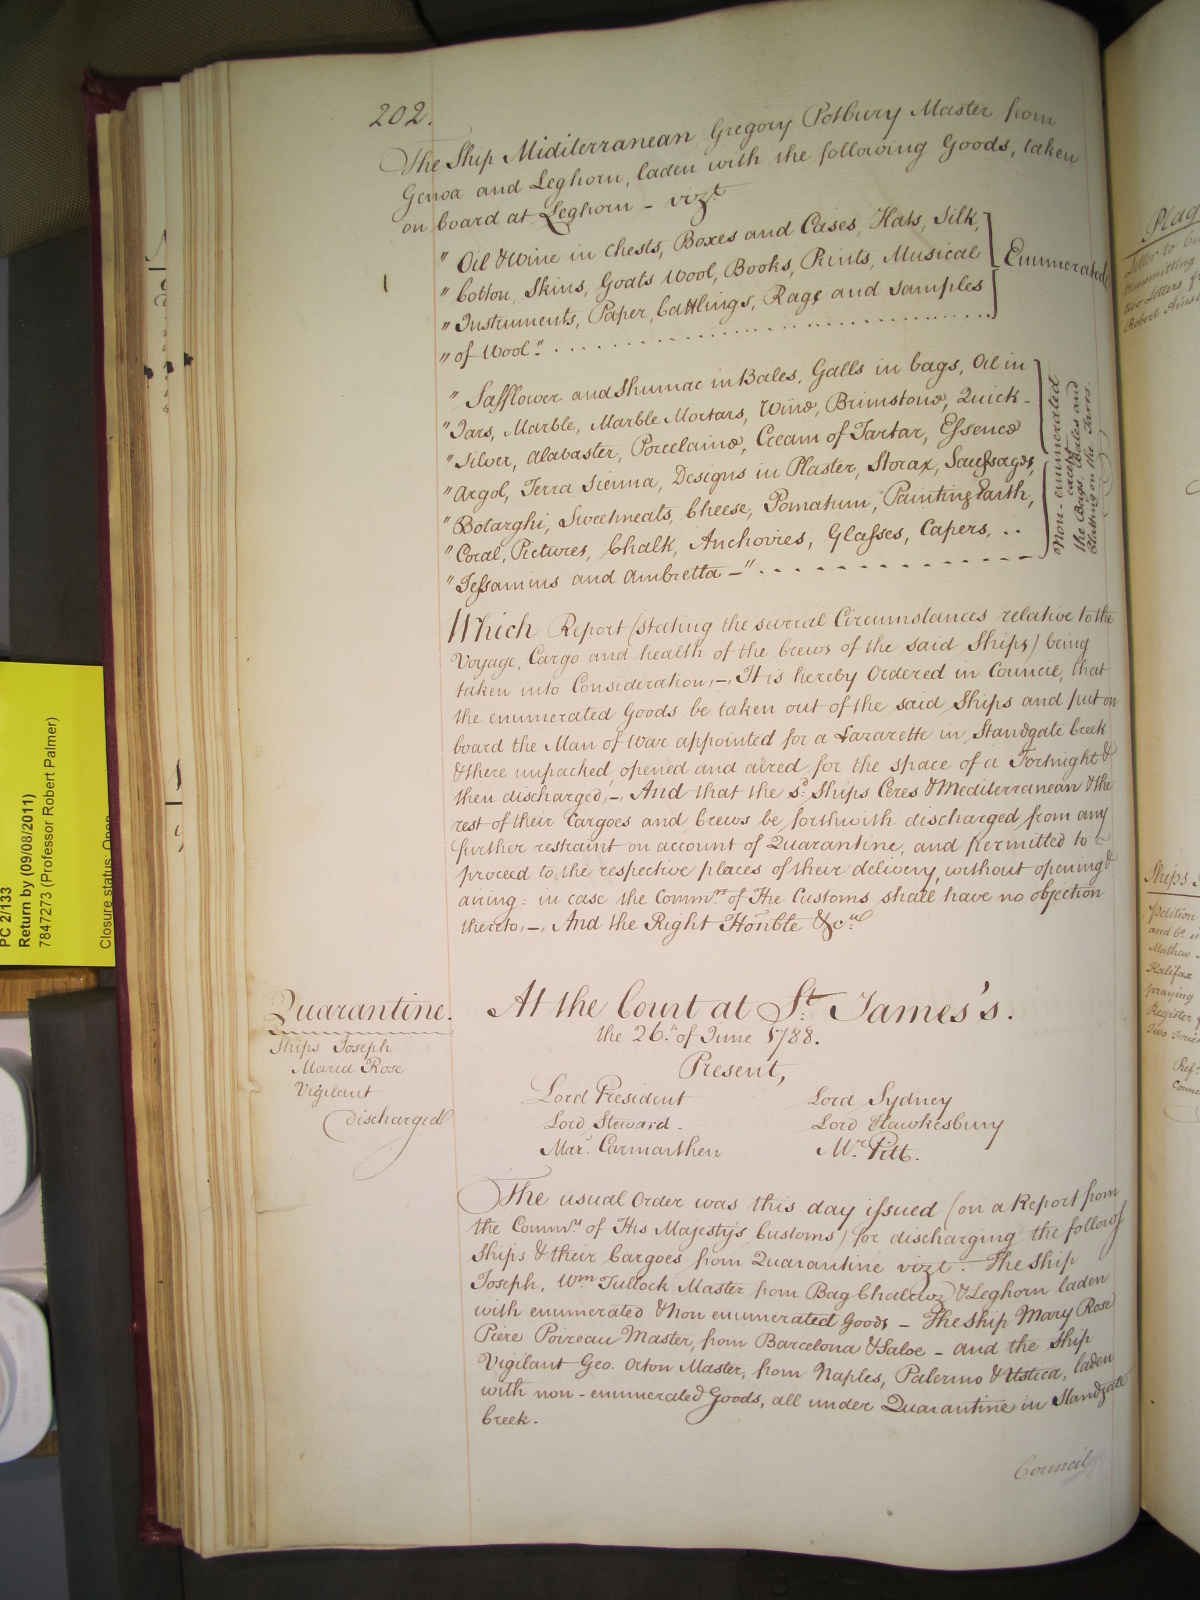 202.
The Ship Miditerranean, Gregory Potbury Master from
Genoa and Leghorn, laden with the following Goods, taken
on board at Leghorn - vizt
" Oil & Wine in Chests, Boxes and Cases, Hats, Silk,
" Cotton, Skins, Goats Wool, Books, Prints, Musical
" Instruments, Paper, Cattlings, Rags and Samples
" of Wool."
Enumerated
" Safflower and Shumac in Bales, Galls in bags, Oil in
" Jars, Marble, Marble Mortars, Wine, Brimstone, Quick-
" Silver, Alabaster, Porcelaine, Cream of Tartar, Essence
" Argol, Terra Sienna, Designs in Plaster, Storax, Saussages,
" Botarghi, Sweetmeats, Cheese, Pomatum, Painting Earth,
" Coral, Pictures, Chalk, Anchovies, Glasses, Capers, ..
" Jessamins and Ambretta -"
Non-enumerated
except
the Bags, Bales and
Matting on the Jarrs.
Which Report (stating the several Circumstances relative to the
Voyage, Cargo and health of the Crews of the said Ships) being
taken into Consideration,-, It is hereby Ordered in Council, that
the enumerated Goods be taken out of the said Ships and put on
board the Man of War appointed for a Lazarette in Standgate Creek
& there unpacked, opened and aired for the space of a Fortnight &
then discharged,-, And that the sd. Ships Ceres & Mediterranean & the
rest of their Cargoes and Crews be forthwith discharged from any
further restraint on account of Quarantine, and permitted to
proceed to the respective places of their delivery, without opening &
airing: in case the Commrs. of the Customs shall have no objection
thereto,-, And the Right Honble &c.
Quarantine.
Ships Joseph
Maria Rose
Vigilant
discharged
At the Court at St. James's.
the 26th. of June 1788.
Present,
Lord President
Lord Steward.
Mar. Carmarthen
Lord Sydney
Lord Hawkesbury
Mr. Pitt.
The usual Order was this day issued (on a Report from
the Commrs of His Majesty's Customs) for discharging the followg
Ships & their Cargoes from Quarantine vizt. The Ship
Joseph, Wm Tullock Master from Bag & Leghorn laden
with enumerated & non enumerated Goods - The Ship Mary Rose
Piere Poireau Master, from Barcelona & Saloe - and the Ship
Vigilant Geo. Orton Master, from Naples, Palermo & Ustica, laden
with non-enumerated Goods, all under Quarantine in Standgate
Creek.
Council
PC 2/133
Return by (09/08/2011)
7847273 (Professor Robert Palmer)
Closure status: Open
Letter to
transmitting
two Letters
Robert
Ships
Petition
Mathew
Halifax
praying
Register
Two
Ref.